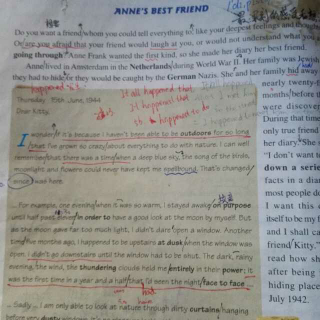 ANNE'S BEST FRIEND
Do you want a friend whom you could tell everything to, like your deepest feelings and thoughts
Or are you afraid that your friend would laugh at you, or would not understand what you
going through? Anne Frank wanted the first kind, so she made her diary her best friend.
Anne lived in Amsterdam in the Netherlands during World War II. Her family was Jewish
they had to hide or they would be caught by the German Nazis. She and her family hid away
nearly twenty-
months before th
were discover
During that time
only true friend
her diary. She s
"I don't want to
down a serie
facts in a dia
most people do
I want this
itself to be my f
and I shall ca
friend Kitty."
read how sh
after being
hiding place
July 1942.
It all happened that
It happened that
Thursday 15th June, 1944
Dear Kitty,
I wonder if it's because I haven't been able to be outdoors for so long
that I've grown so crazy about everything to do with nature. I can well
remember that there was a time when a deep blue sky, the song of the birds,
moonlight and flowers could never have kept me spellbound. That's changed
since I was here.
...For example, one evening when it was so warm, I stayed awake on purpose
until half past eleven in order to have a good look at the moon by myself. But
as the moon gave far too much light, I didn't dare open a window. Another
time five months ago, I happened to be upstairs at dusk when the window was
open. I didn't go downstairs until the window had to be shut. The dark, rainy
evening, the wind, the thundering clouds held me entirely in their power; it
was the first time in a year and a half that I'd seen the night face to face...
...Sadly ... I am only able to look at nature through dirty curtains hanging
before very dusty windows.